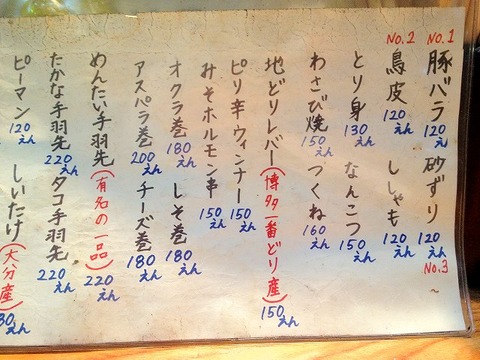 No.1 豚バラ 120えん 砂ずり 120えん No.3
No.2 鳥皮 120えん ししゃも 120えん
とり身 130えん なんこつ 150えん
わさび焼 150えん つくね 160えん
地どりレバー(博多一番どり産) 150えん
ピリ辛ウィンナー 150えん
みそホルモン串 150えん
オクラ巻 180えん しそ巻 180えん
アスパラ巻 200えん チーズ巻 180えん
めんたい手羽先(有名の一品) 220えん
たかな手羽先 220えん タコ手羽先 220えん
ピーマン 120えん しいたけ(大分産)